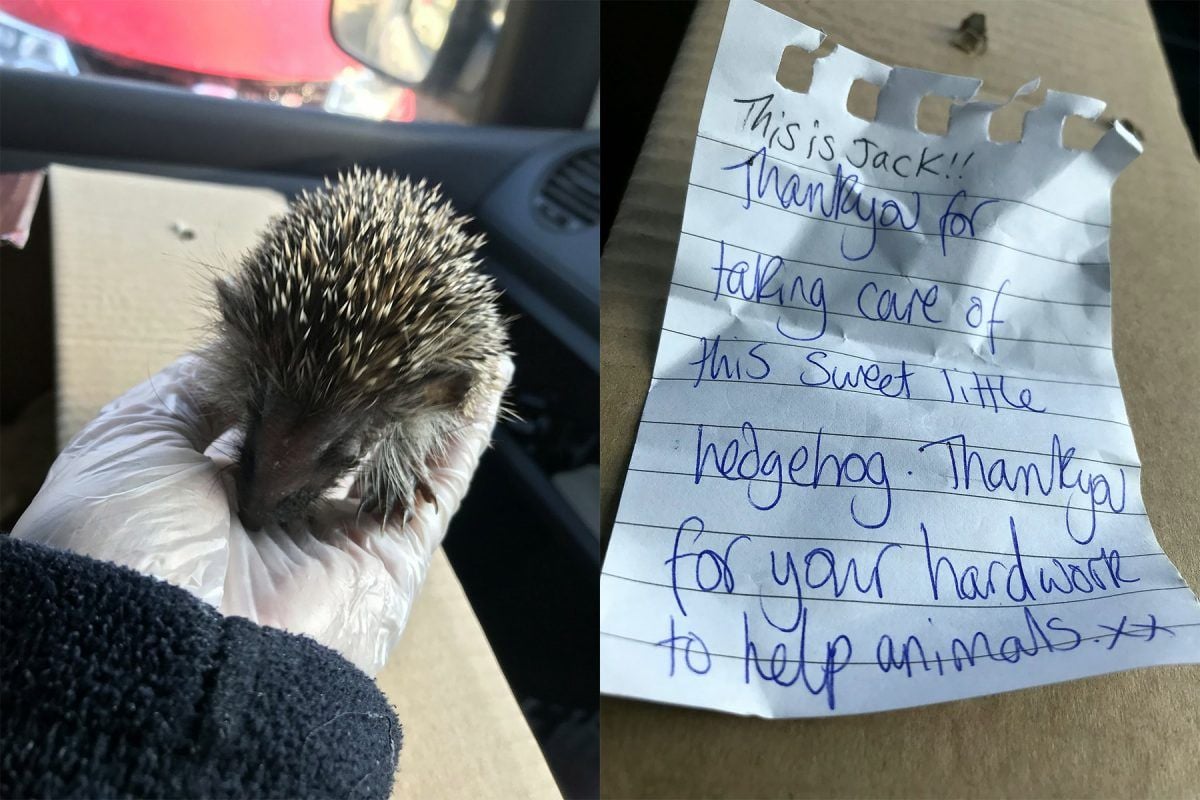 This is Jack!!
Thankyou for
taking care of
this sweet little
hedgehog. Thankyou
for your hardwork
to help animals. xx